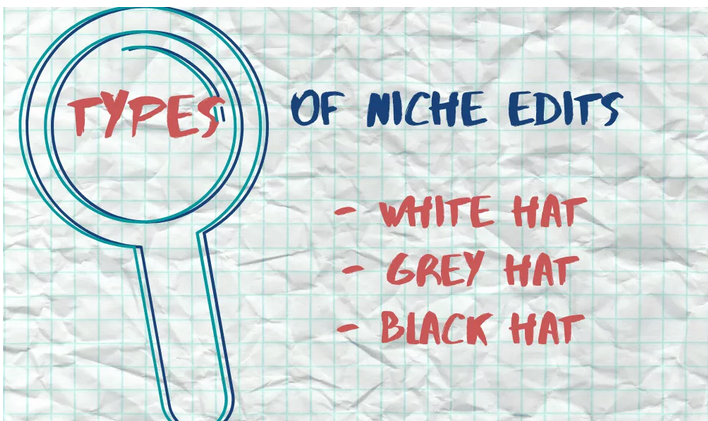 TYPES OF NICHE EDITS
- WHITE HAT
- GREY HAT
- BLACK HAT